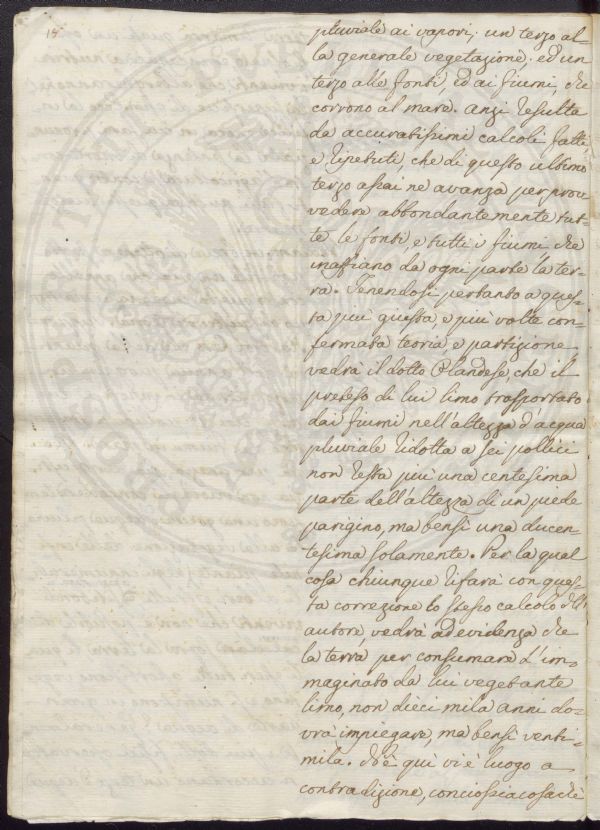 18
pluviale ai vapori; un terzo al
la generale vegetazione: ed un
terzo alle fonti, ed ai fiumi, che
corrono al mare. anzi resulta
da accuratissimi calcoli fatti,
e ripetuti, che di questo ultimo
terzo assai ne avanza per prov
vedere abbondantemente tut-
te le fonti, e tutti i fiumi che
inaffiano da ogni parte la ter-
ra. Tenendosi pertanto a ques-
ta piu' giusta, e piu' volte con-
fermata teoria, e partizione,
vedrà il dotto Olandese, che il
preteso di lui limo trasportato
dai fiumi nell'altezza d'acqua
pluviale ridotta a sei pollici
non resta piu' una centesima
parte dell'altezza di un piede
parigino, ma bensì una ducen-
tesima solamente. Per la qual
cosa chiunque rifarà con ques-
ta correzione lo stesso calcolo dell'
autore, vedrà ad evidenza che
la terra per consumare l'im-
maginato da lui vegetante
limo, non dieci mila anni do-
vrà impiegare, ma bensì venti-
mila. Nè qui vi è luogo a
contradizione, conciossiacosachè